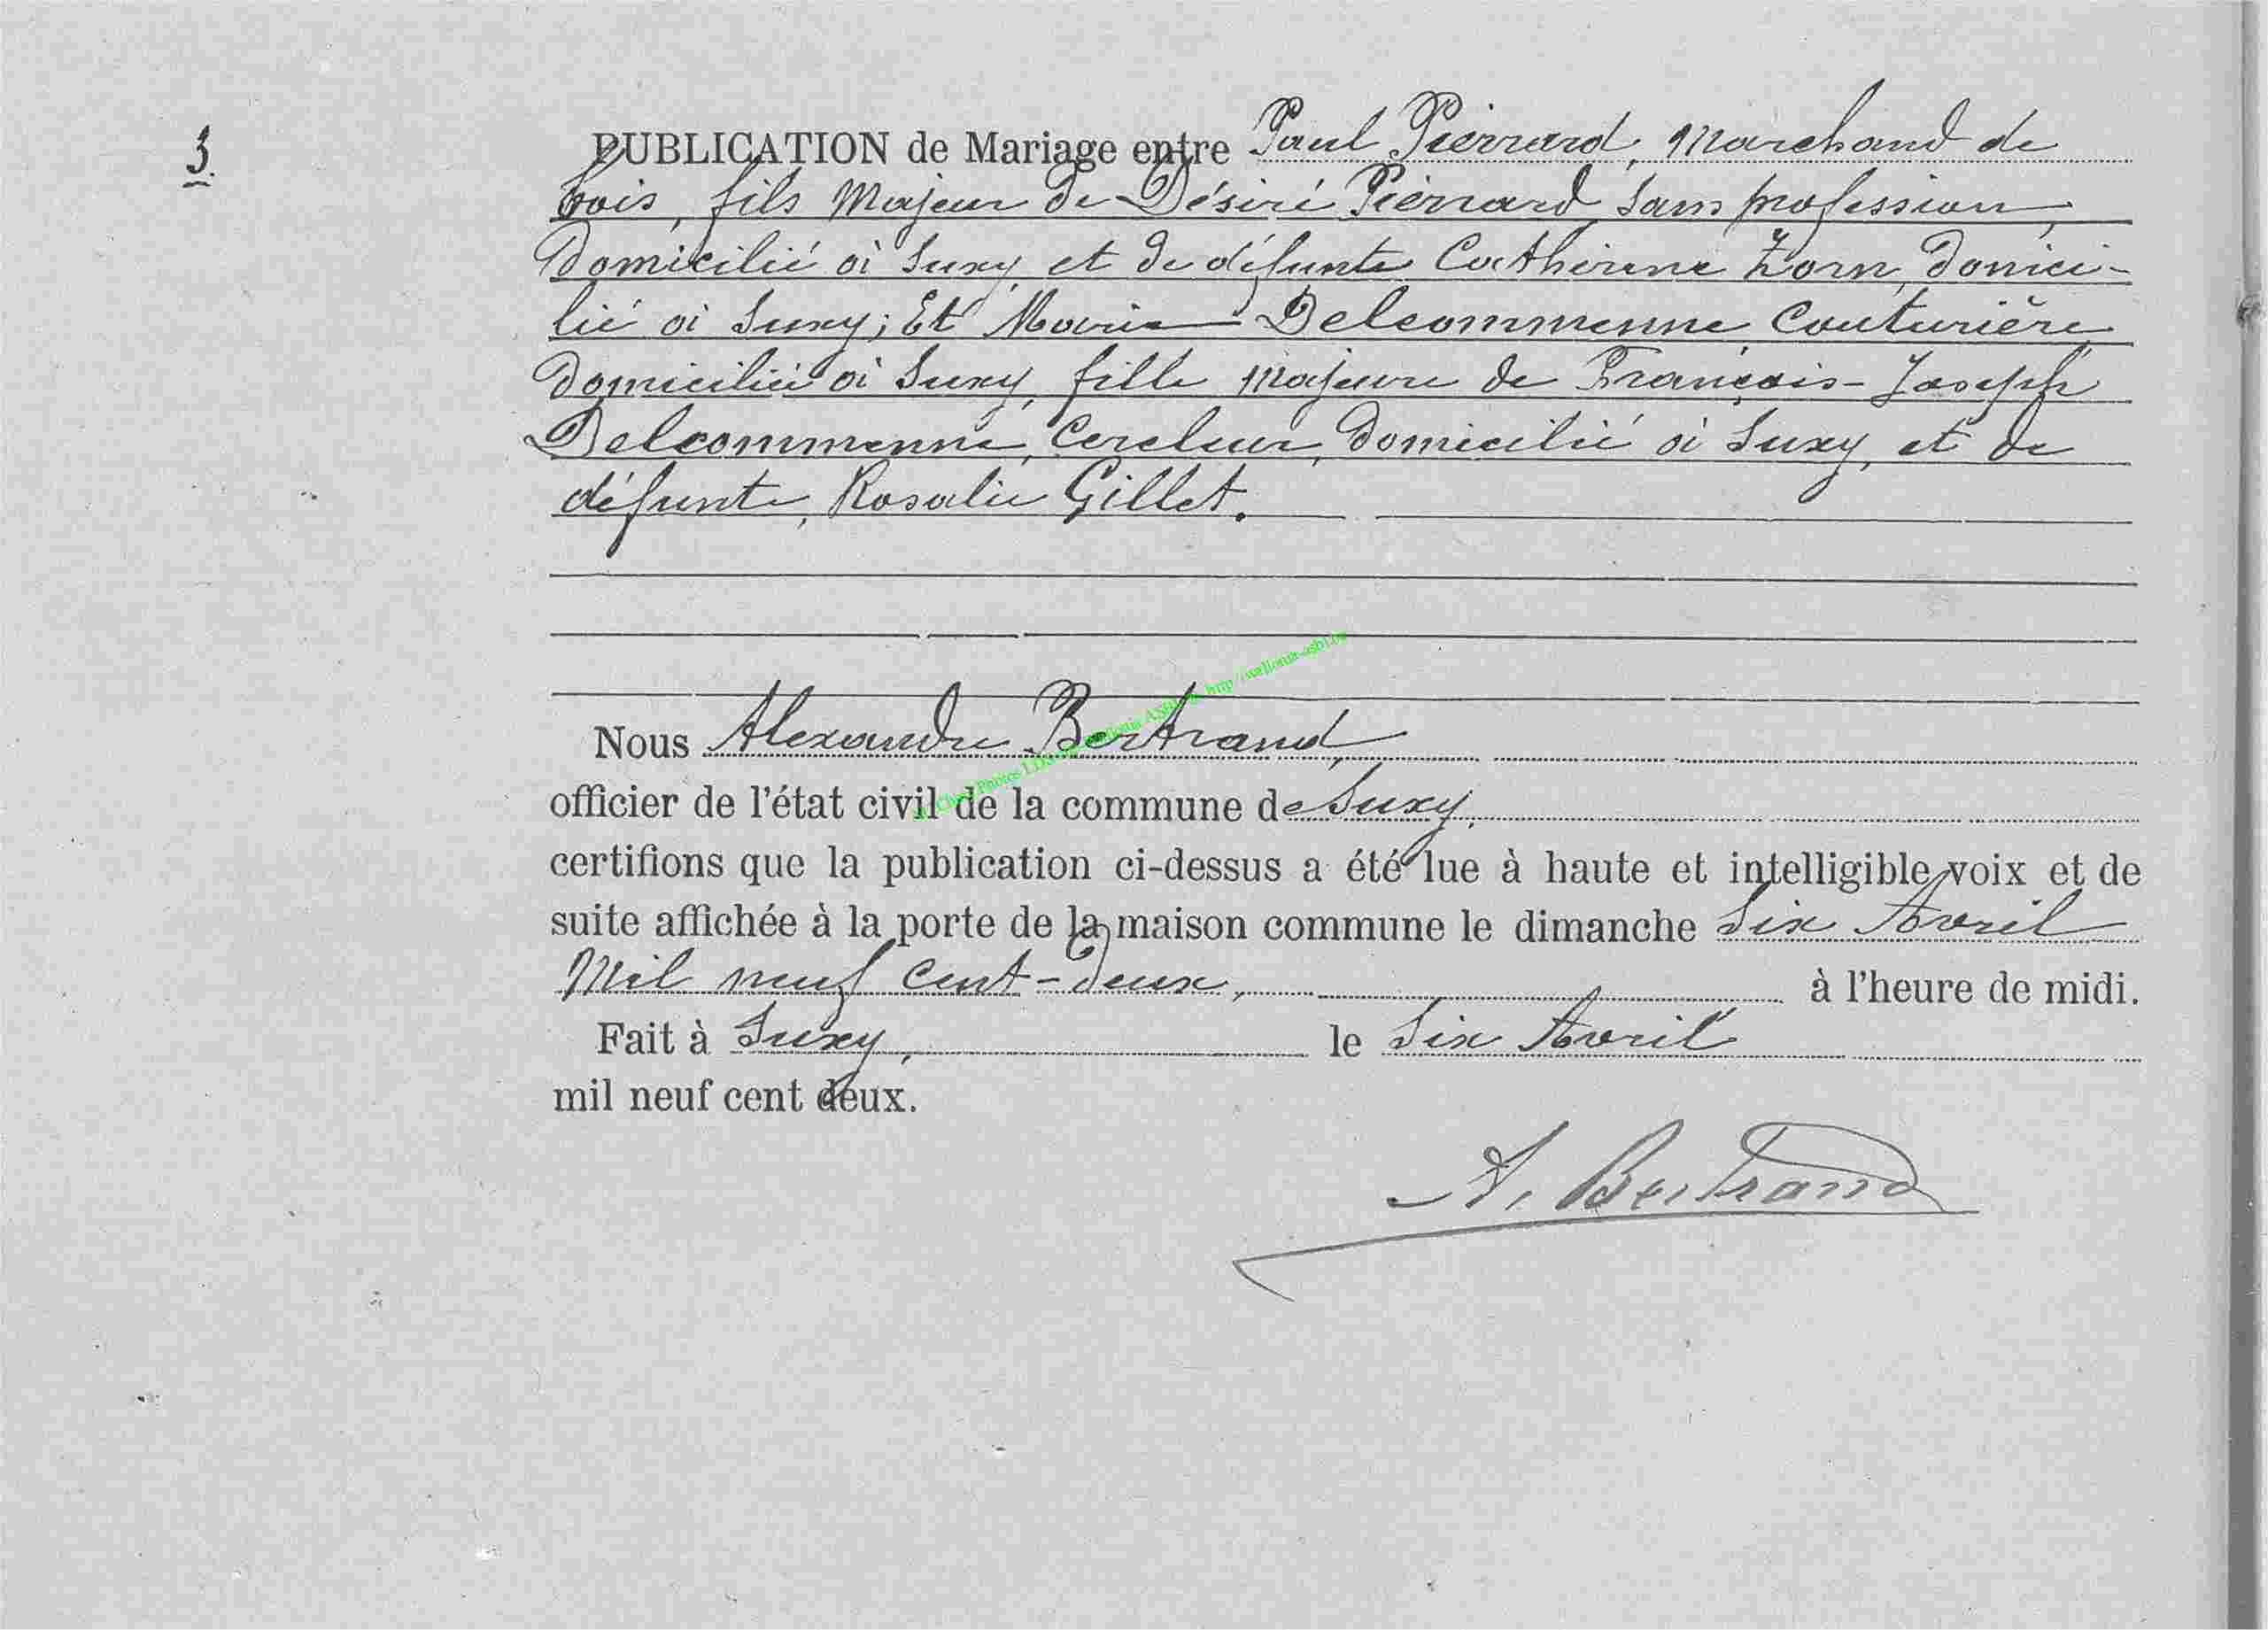 3.
PUBLICATION de Mariage entre Paul Pierrard, Marchand de
bois, fils Majeur de Désiré Pierrard Sans profession,
Domicilié à Suxy, et de défunte Catherine Zorn, Domici-
lié à Suxy; Et Marie Delcommenne, Couturière,
Domiciliée à Suxy, fille Majeure de François-Joseph
Delcommenne, Cercleur, Domicilié à Suxy, et de
défunte, Rosalie Gillet.
Nous Alexandre Bertrand,
officier de l'état civil de la commune de Suxy,
certifions que la publication ci-dessus a été lue à haute et intelligible voix et de
suite affichée à la porte de la maison commune le dimanche Six Avril
Mil neuf Cent-Deux, à l'heure de midi.
Fait à Suxy, le Six Avril
mil neuf cent deux.
A. Bertrand